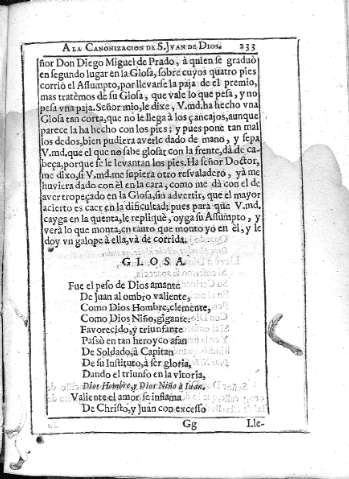 A LA CANONIZACION DE S. JVAN DE DIOS. 233
ñor Don Diego Miguel de Prado, à quien se graduò
en segundo lugar en la Glosa, sobre cuyos quatro pies
corriò el Assumpto, por llevarse la paja de el premio,
mas tratèmos de su Glosa, que vale lo que pesa, y no
pesa vna paja. Señor mio, le dixe, V.md. ha hecho vna
Glosa tan corta, que no le llega à los çancajos, aunque
parece la ha hecho con los pies; y pues pone tan mal
los dedos, bien pudiera averle dado de mano, y sepa
V.md. que el que no sabe glosar con la frente, dà de ca-
beça, porque se le levantan los pies. Ha señor Doctor,
me dixo, si V.md. me supiera otro resvaladero, yà me
huviera dado con èl en la cara, como me dà con el de
aver tropeçado en la Glosa, sin advertir, que el mayor
acierto es caer en la dificultad; pues para que V.md.
cayga en la quenta, le repliquè, oyga su Assumpto, y
verà lo que monta, en tanto que monto yo en èl, y le
doy vn galope à ella, và de corrida.
GLOSA.
Fue el peso de Dios amante
De Juan al ombro valiente,
Como Dios Hombre, clemente,
Como Dios Niño, gigante:
Favorecido, y triunfante
Passò en tan heroyco afan
De Soldado, à Capitan
De su Instituto, à ser gloria,
Dando el triunfo en la vitoria,
Dios Hombre, y Dios Niño à Juan.
Valiente el amor se inflama
De Christo, y Juan con excesso
Gg Lle-